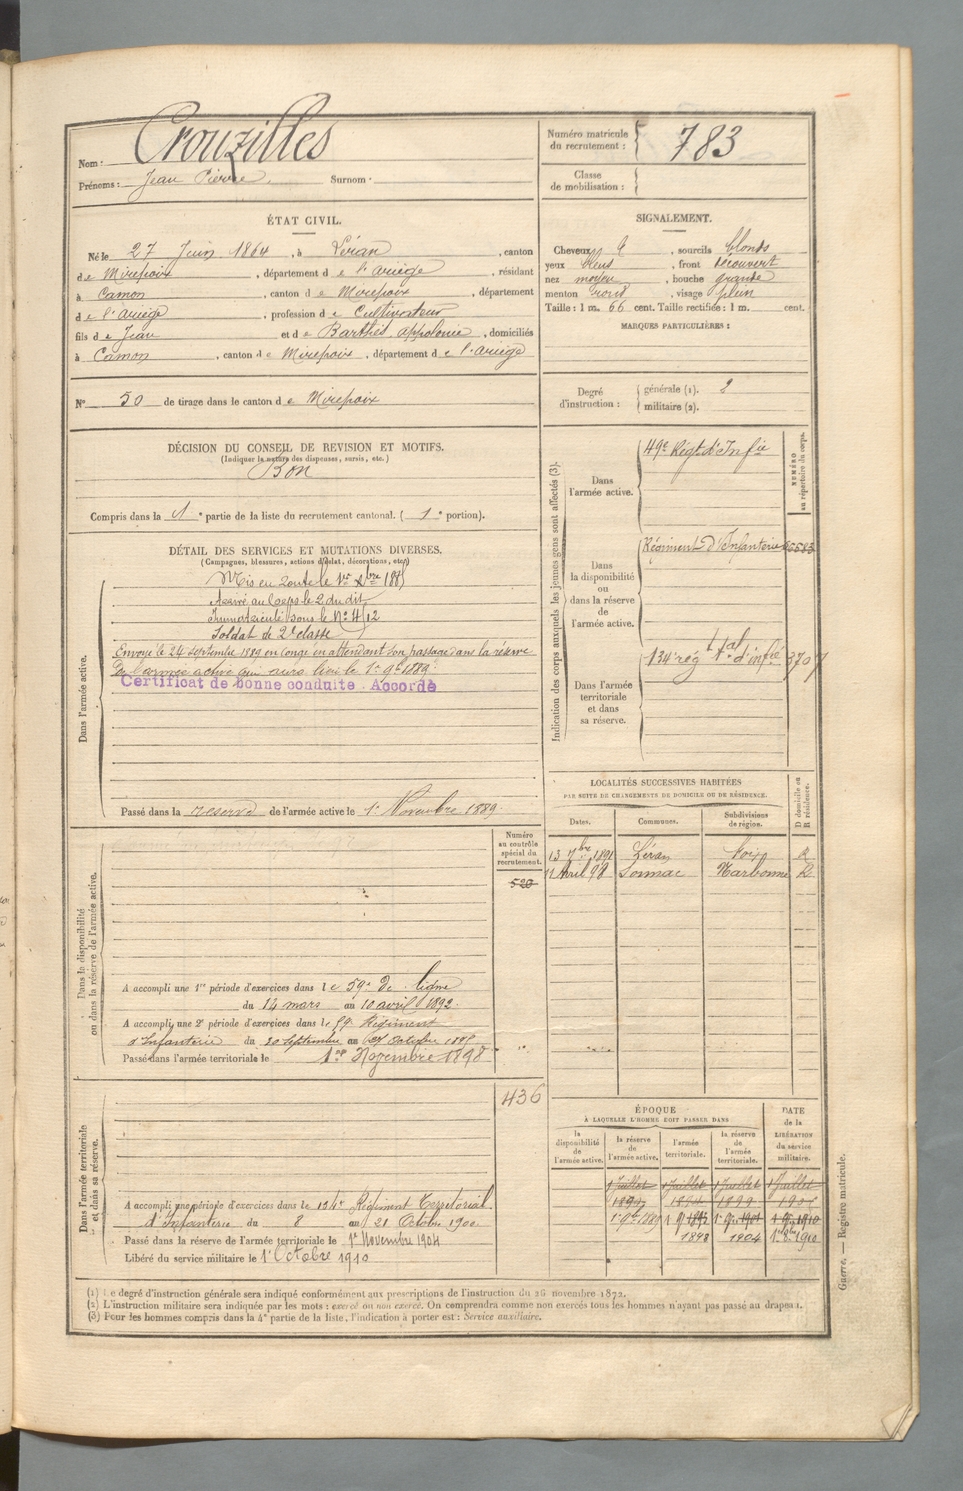 Nom : Crouzilles
Prénoms : Jean Pierre Surnom :
Numéro matricule du recrutement : 783
Classe de mobilisation :
ÉTAT CIVIL.
Né le 27 Juin 1864, à Léran, canton
de Mirepoix, département de l'Ariège, résidant
à Camon, canton de Mirepoix, département
de l'Ariège, profession de Cultivateur
fils de Jean et de Barthès appolonie, domiciliés
à Camon, canton de Mirepoix, département de l'Ariège
SIGNALEMENT.
Cheveux, sourcils blonds
yeux bleus, front découvert
nez moyen, bouche grande
menton rond, visage plein
Taille : 1 m. 66 cent. Taille rectifiée : 1 m. cent.
MARQUES PARTICULIÈRES :
N° 50 de tirage dans le canton de Mirepoix
Degré d'instruction : générale (1). 2
militaire (2).
DÉCISION DU CONSEIL DE REVISION ET MOTIFS.
(Indiquer la nature des dispenses, sursis, etc.)
Bon
Compris dans la 1e partie de la liste du recrutement cantonal. (1e portion).
DÉTAIL DES SERVICES ET MUTATIONS DIVERSES.
(Campagnes, blessures, actions d'éclat, décorations, etc.)
Dans l'armée active.
Mis en route le 1er Xbre 188
Arrivé au Corps le 2 du dit
Immatriculé sous le N° 4112
Soldat de 2e classe
Envoyé le 24 septembre 1889 en congé en attendant son passage dans la réserve
de l'armée active qui aura lieu le 1er 9bre 1889.
Certificat de bonne conduite Accordé
Passé dans la réserve de l'armée active le 1er Novembre 1889.
Indication des corps auxquels les jeunes gens sont affectés (3).
NUMÉRO au répertoire du corps.
Dans l'armée active.
49e Régt d'Infie
Dans la disponibilité ou dans la réserve de l'armée active.
Régiment d'Infanterie
Dans l'armée territoriale et dans sa réserve.
134e rég tal d'infie 3707
LOCALITÉS SUCCESSIVES HABITÉES
PAR SUITE DE CHANGEMENTS DE DOMICILE OU DE RÉSIDENCE.
Dates. Communes. Subdivisions de région. D domicile ou R résidence.
13 7bre 1891 Léran Foix R
Avril 98 Narbonne R
Dans la disponibilité ou dans la réserve de l'armée active.
Numéro au contrôle spécial du recrutement.
520
A accompli une 1re période d'exercices dans le 59e de ligne
du 14 mars au 10 avril 1892.
A accompli une 2e période d'exercices dans le 59e Régiment
d'Infanterie du 30 septembre au 27 Octobre
Passé dans l'armée territoriale le 1er Novembre 1898
Dans l'armée territoriale et dans sa réserve.
436
A accompli une période d'exercices dans le 134e Régiment Territorial
d'Infanterie du 8 au 21 Octobre 1900.
Passé dans la réserve de l'armée territoriale le 1er Novembre 1904
Libéré du service militaire le 1er Octobre 1910
ÉPOQUE
À LAQUELLE L'HOMME DOIT PASSER DANS
la disponibilité de l'armée active. la réserve de l'armée active. l'armée territoriale. la réserve de l'armée territoriale.
DATE de la LIBÉRATION du service militaire.
1 Juillet 1 Juillet 1 Juillet 1 Juillet
1899
1er 9bre 1889
1898 1904 1910
(1) Le degré d'instruction générale sera indiqué conformément aux prescriptions de l'instruction du 26 novembre 1872.
(2) L'instruction militaire sera indiquée par les mots : exercé ou non exercé. On comprendra comme non exercés tous les hommes n'ayant pas passé au drapeau.
(3) Pour les hommes compris dans la 4e partie de la liste, l'indication à porter est : Service auxiliaire.
Guerre. — Registre matricule.